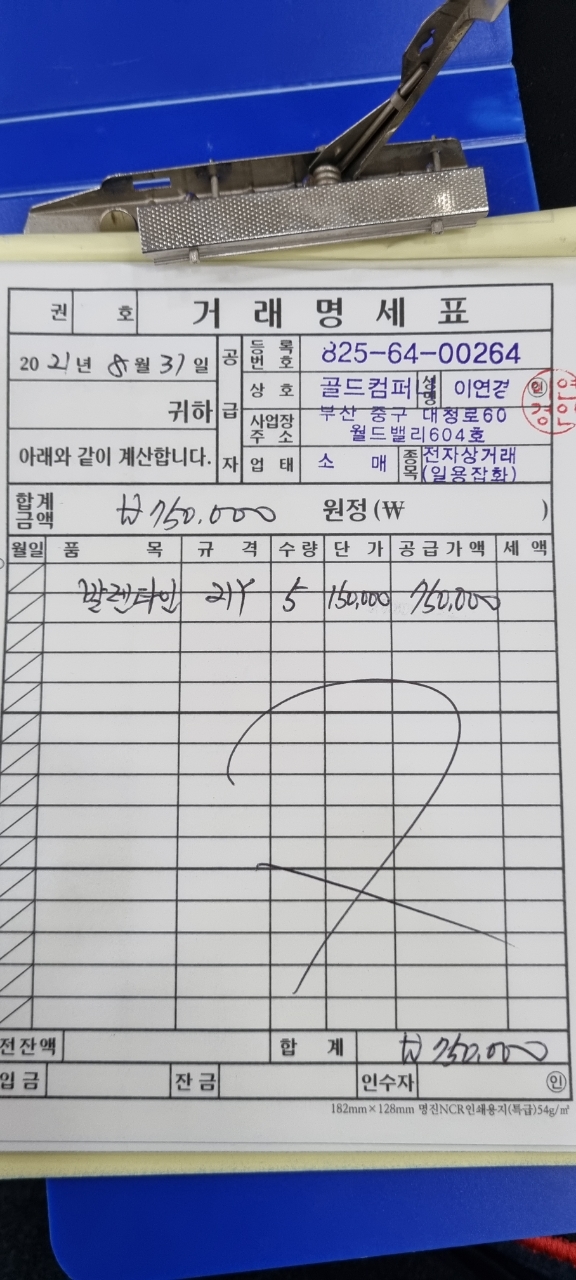 권 호 거 래 명 세 표
2021년 8월 31일
귀하
아래와 같이 계산합니다.
공 급 자
등록번호 825-64-00264
상 호 골드컴퍼니 성명 이연경 ㊞
사업장주소 부산 중구 대청로60
월드밸리604호
업 태 소 매 종목 전자상거래
(일용잡화)
합계금액 ₩750.000 원정(₩ )
월일 품 목 규 격 수량 단 가 공급가액 세 액
발렌타인 21Y 5 150,000 750,000
전잔액 합 계 ₩750,000
입금 잔금 인수자 ㊞
182mm×128mm 명진NCR인쇄용지(특급)54g/㎡